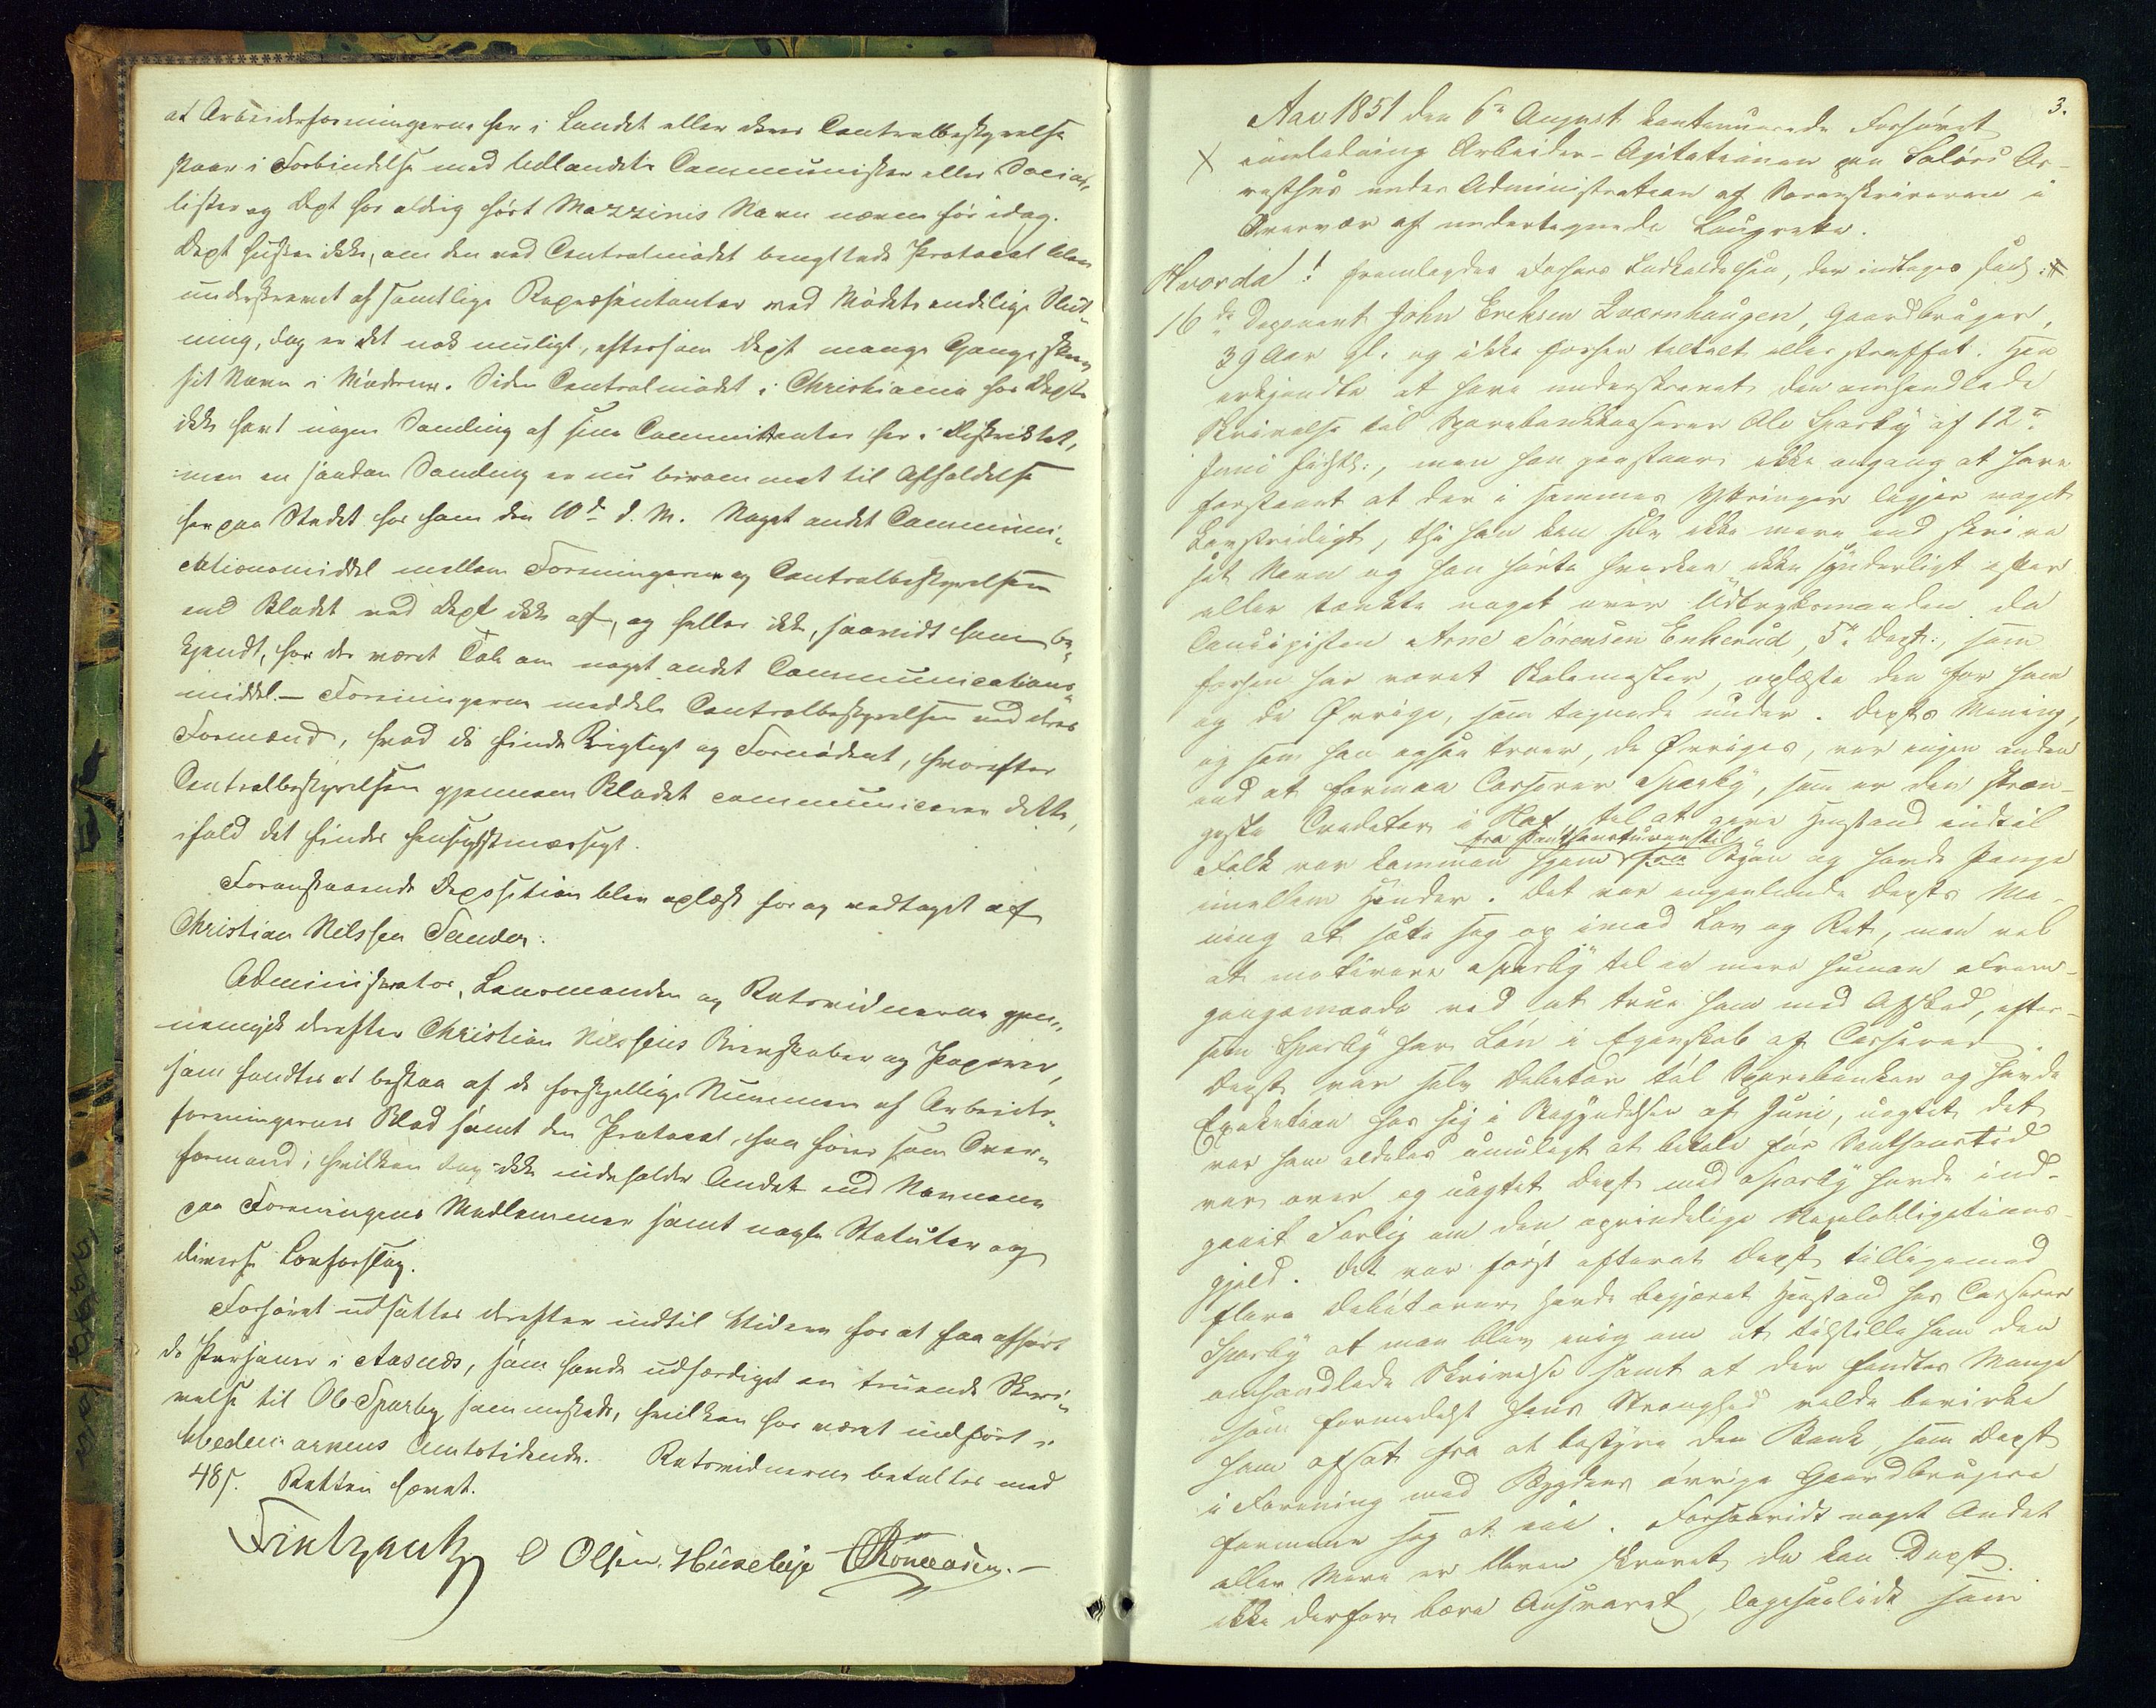 at Arbeiderforeningerne her i Landet eller deres Centralbestyrelse
staar i Forbindelse med Udlandets Communister eller Socia-
lister og Dept har aldrig hørt Mazzinis Navn nævne før idag.
Dept husker ikke, om den ved Centralmødet benyttede Protocol blev
underskrevet af samtlige Repræsentanter ved Mødets endelige Slut-
ning, dog er det nok muligt, eftersom Dept mange Gange skrev
sit Navn i Møderne. Siden Centralmødet i Christiania har Dept
ikke havt nogen Samling af sine Committenter her i Distriktet,
men en saadan Samling er nu berammet til Afholdelse
her paa Stedet hos ham den 10de d. M. Noget andet Communi-
cationsmiddel mellem Foreningerne og Centralbestyrelsen
end Bladet ved Dept ikke af, og heller ikke, saavidt ham be-
kjendt, har der været Tale om noget andet Communications-
middel. — Foreningerne meddele Centralbestyrelsen ved deres
Formænd, hvad de finde Vigtigt og Fornødent, hvorefter
Centralbestyrelsen gjennem Bladet communicerer dette,
ifald det findes hensigtsmæssigt.
Foranstaaende Deposition blev oplæst for og vedtaget af
Christian Nilssen Sander.
Administrator, Lensmanden og Retsvidnerne gjen-
nemgik derefter Christian Nilssens Brevskaber og Papirer,
som fandtes at bestaa af de forskjellige Nummere af Arbeider-
foreningernes Blad samt den Protocol, han fører som Over-
formand, hvilken dog ikke indeholder Andet end Navnene
paa Foreningens Medlemmer samt nogle Statuter og
diverse Lovforslag.
Forhøret udsattes derefter indtil Videre for at faa afhørt
de Personer i Aasnes, som havde udfærdiget en truende Skri-
velse til Ole Sparby sammesteds, hvilken har været indført i
Hedemarkens Amtstidende. Retsvidnerne betaltes med
48ſ. Retten hævet.
O Olsen Huseleje
3.
Aar 1851 den 6te August kontinuerede Forhøret
X i anledning Arbeider-Agitationen paa Soløers Ar-
resthus under Administration af Sorenskriveren i
Overvær af undertegnede Laugrette.
Hvorda! fremlagdes Forhørs Indkaldelsen, der indtages
16de Deponent John Eriksen Kværnhaugen, Gaardbruger,
39 Aar gl. og ikke forhen tiltalt eller straffet. Han
erkjendte at have underskrevet den omhandlede
Skrivelse til Sparebankkasserer Ole Sparby af 12te
Juni sidstl:, men han paastaar ikke engang at have
forstaaet at der i sammes Yttringer ligger noget
Lovstridigt, thi han kan selv ikke mere end skrive
sit Navn og han hørte hverken ikke synderligt efter
eller tænkte noget over Udtryksmaaden da
Concipisten Arne Sørensen Enkerud, 5te Dept:, som
forhen har været Skolemester, oplæste den for ham
og de Øvrige, som tegnede under. Depts Mening,
og som han ogsaa troer, de Øvriges, var ingen anden
end at formaa Casserer Sparby, som er den stræn-
geste Creditor i Hof, til at give Henstand indtil
fra Sandhaarturenstil
Folk var kommen hjem fra Byen og havde Penge
imellem Hænder. Det var ingenlunde Depts Me-
ning at sætte sig op imod Lov og Ret, men vel
at motivere Sparby til en mere human Frem-
gangsmaade ved at true ham med Afsked, efter-
som Sparby har Løn i Egenskab af Casserer.
Dept var selv Debitor til Sparebanken og havde
Exekution hos sig i Begyndelsen af Juni, uagtet det
var ham aldeles umuligt at betale før Santhanstid
var over og uagtet Dept med Sparby havde ind-
gaaet Forlig om den oprindelige Vexelobligations-
gjæld. Det var først efterat Dept tilligemed
flere Debitorer havde begjæret Henstand hos Casserer
Sparby at man blev enig om at tilstille ham den
omhandlede Skrivelse samt at der fandtes Mange
som formedelst hans Strenghed vilde bevirke
ham afsat fra at bestyre den Bank, som Dept
i Forening med Bygdens øvrige Gaardbrugere
formener sig at eie. Forsaavidt noget Andet
eller Mere er bleven skrevet, da kan Dept
ikke derfor bære Ansvaret, ligesaalidt som